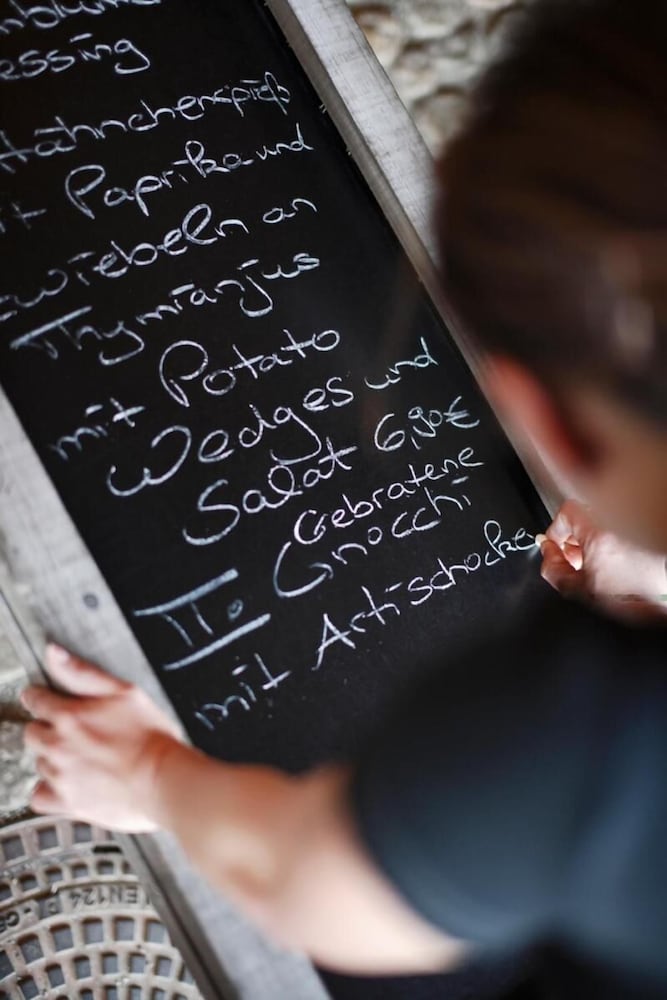 nblume
essing
Hähnchenspieß
it Paprika und
zwiebeln an
Thymianjus
mit Potato
Wedges und
Salat 6,90€
II. Gebratene
Gnocchi
mit Artischocke
EN124